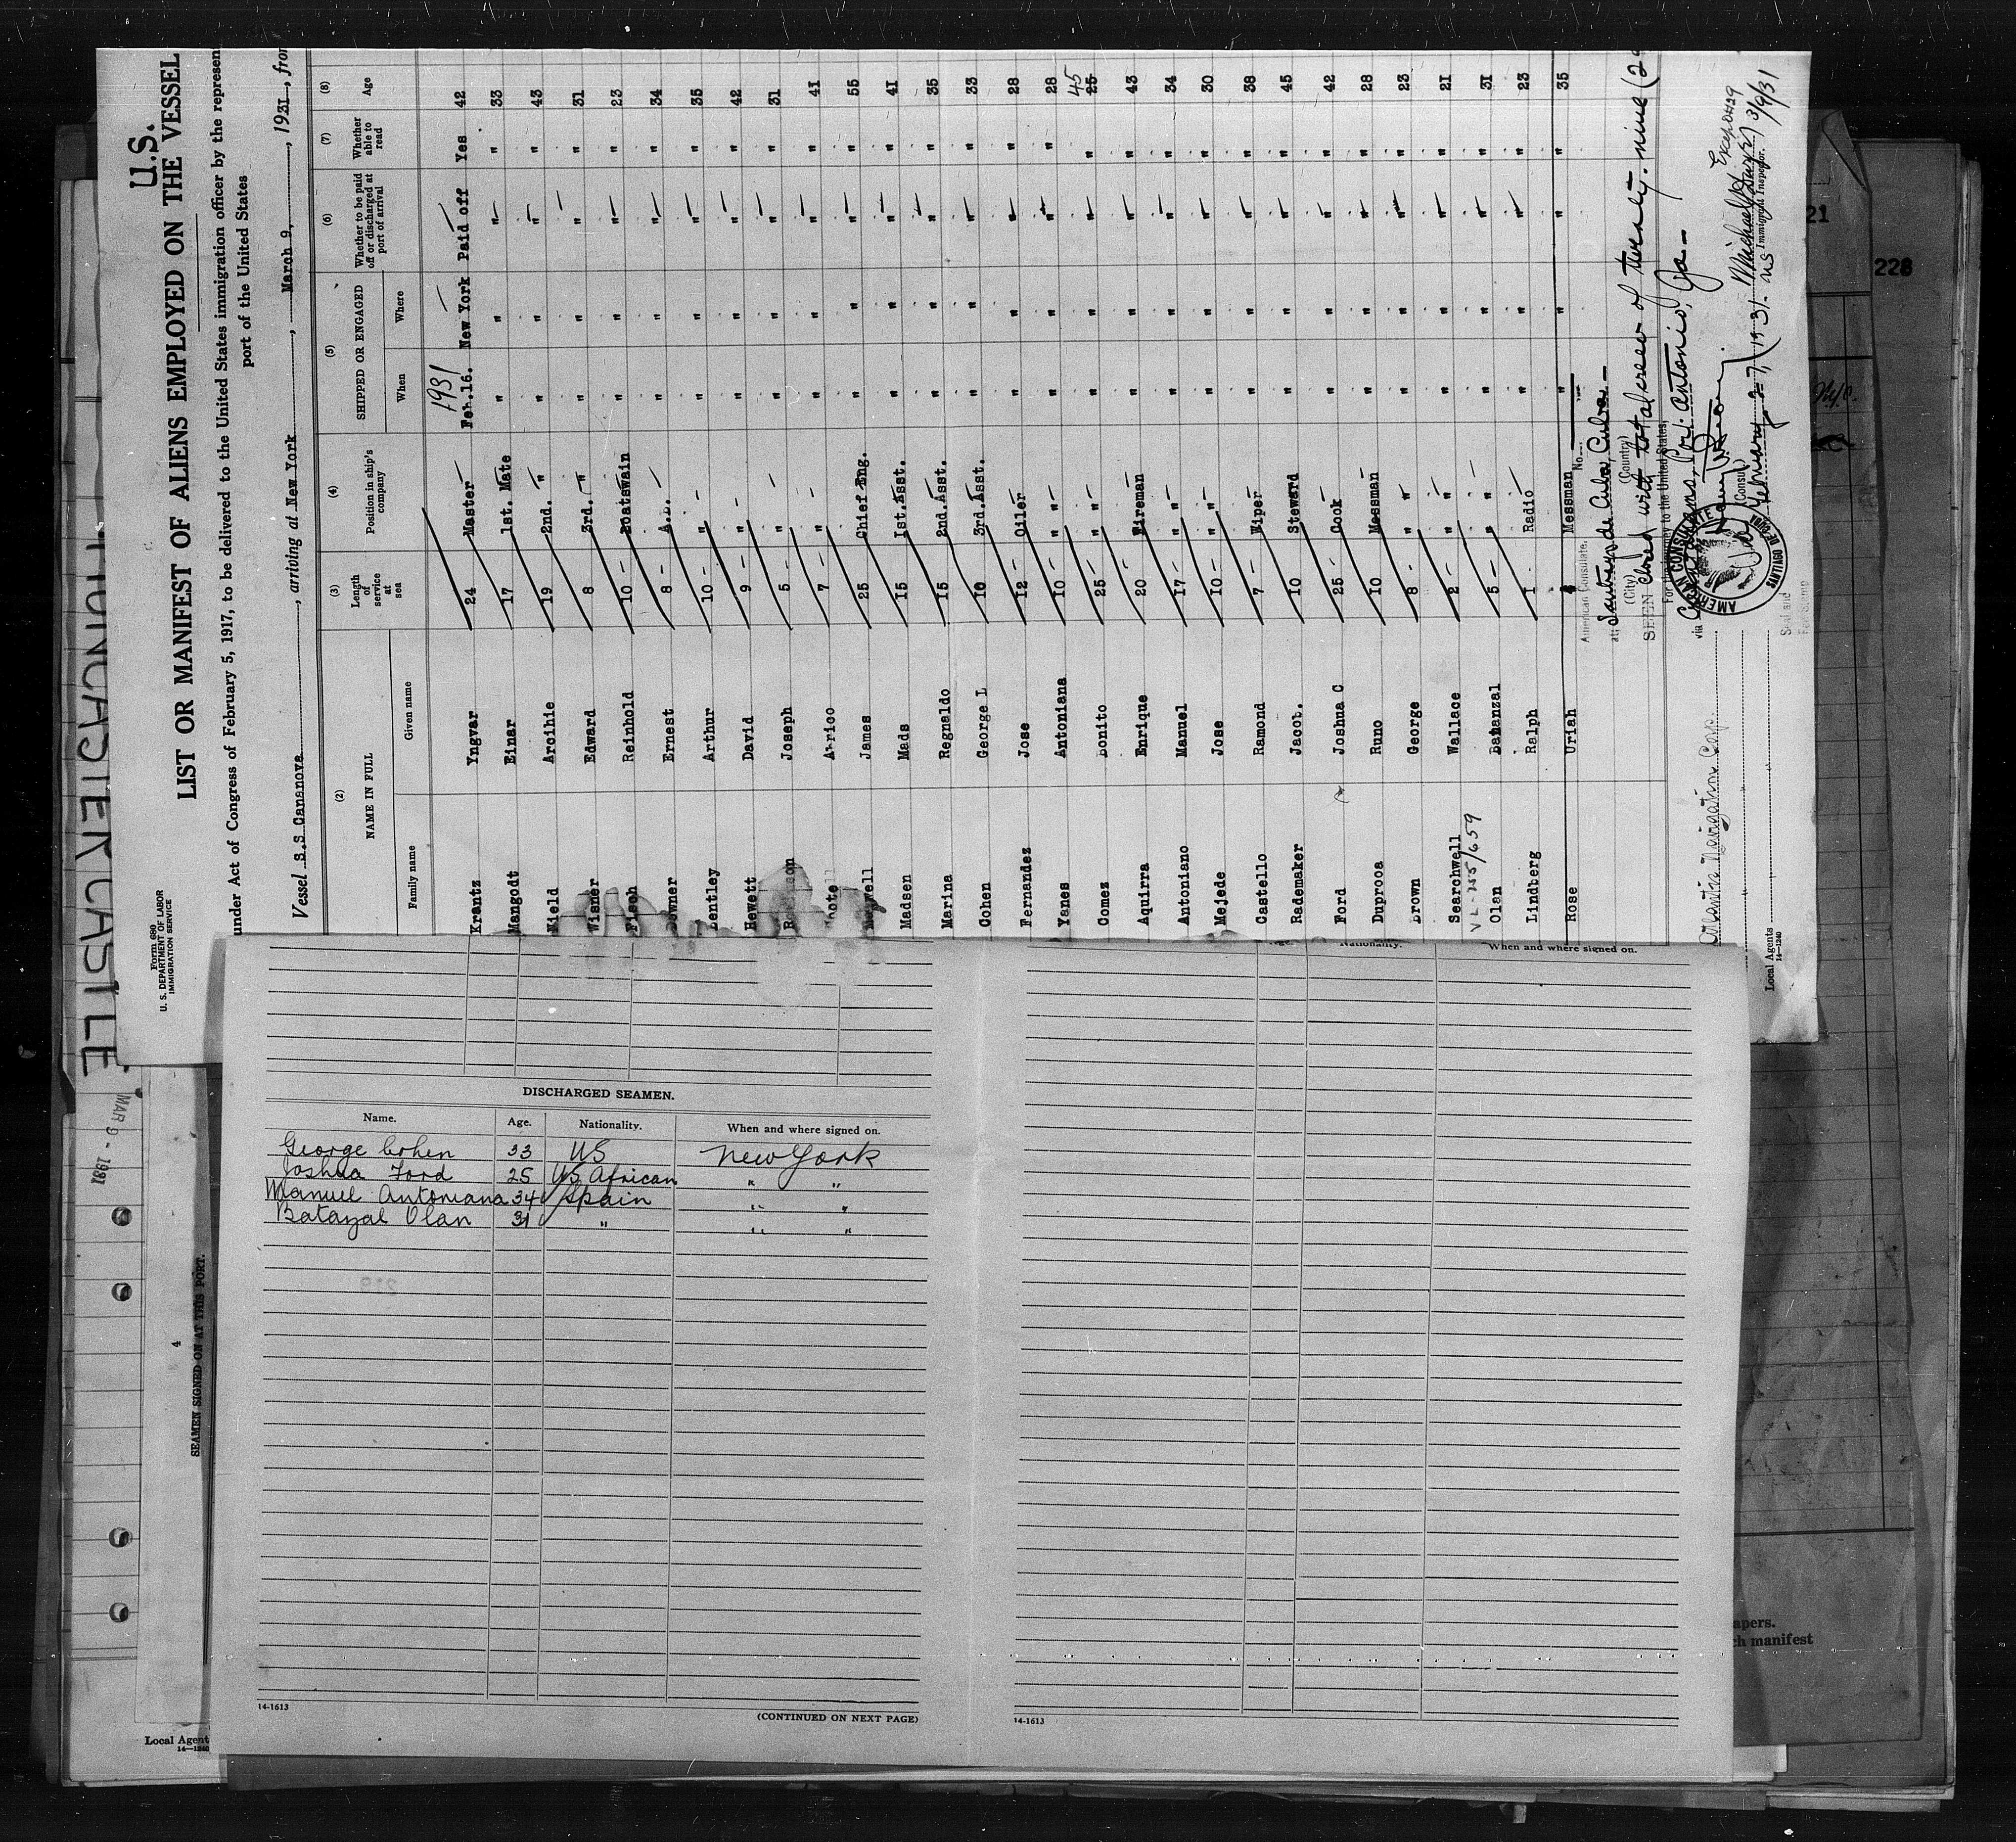 U.S.
Form 680
U. S. DEPARTMENT OF LABOR
IMMIGRATION SERVICE
LIST OR MANIFEST OF ALIENS EMPLOYED ON THE VESSEL
under Act of Congress of February 5, 1917, to be delivered to the United States immigration officer by the represen
port of the United States
Vessel S.S Cananova, arriving at New York, March 9, 1931, from
(2) (3) (4) (5) (6) (7) (8)
NAME IN FULL Length of service at sea Position in ship's company SHIPPED OR ENGAGED Whether to be paid off or discharged at port of arrival Whether able to read Age
Family name Given name When Where
1931
Krantz Yngvar 24 Master Feb.16. New York Paid off Yes 42
Mangodt Einar 17 1st. Mate " " " " 33
Mield Arcihie 19 2nd. " " " " " 43
Wisner Edward 8 3rd. " " " " " 31
Fisch Reinhold 10 Boatswain " " " " 23
Downer Ernest 8 A.B. " " " " 34
Bentley Arthur 10 " " " " " 35
Hewett David 9 " " " " " 42
Joseph 5 " " " " " 31
7 " " " " " 41
Maxwell James 25 Chief Eng. " " " 55
Madsen Mads 15 1st.Asst. " " " " 41
Marina Regnaldo 15 2nd.Asst. " " " " 35
Cohen George L 10 3rd.Asst. " " " " 33
Fernandez Jose 12 Oiler " " " " 28
Yanes Antoniana 10 " " " " " 28
Gomez Bonito 25 " " " " " 25 45
Aquirra Enrique 20 Fireman " " " " 43
Antoniano Manuel 17 " " " " " 34
Mejede Jose 10 " " " " " 30
Castello Ramond 7 Wiper " " " " 38
Rademaker Jacob. 10 Steward " " " " 45
Ford Joshua C 25 Cook " " " " 42
Duprooa Runo 10 Messman " " " " 28
Brown George 8 " " " " " 23
Searchwell Wallace 2 " " " " " 21
VL-255/659
Olan Batanzal 5 " " " " " 31
Lindberg Ralph 1 Radio " " " " 23
Rose Uriah 4 Messman " " " " 35
American Consulate, No.
at Santiago de Cuba, Cuba
(City) (Country)
SEEN closed with total crew of twenty-nine (29
For the journey to the United States,
via Guantanamo, Port Antonio, Ja -
(Consul)
February 27, 1931.
AMERICAN CONSULATE
SANTIAGO DE CUBA
Seal and
Fee Stamp
US Immigrant Inspector.
3/9/31
Atlantic Navigation Corp
" "
" "
Local Agents
14-1240
MUNCASTER CASTLE
MAR 9 - 1931
4
SEAMEN SIGNED ON AT THIS PORT.
Local Agent
14-1240
21
228
apers.
ch manifest
Nationality. When and where signed on.
DISCHARGED SEAMEN.
Name. Age. Nationality. When and where signed on.
George Cohen 33 US New York
Joshua Ford 25 US African " "
Manuel Antoniana 34 Spain " "
Batazal Olan 31 " " "
219
14-1613
(CONTINUED ON NEXT PAGE)
14-1613